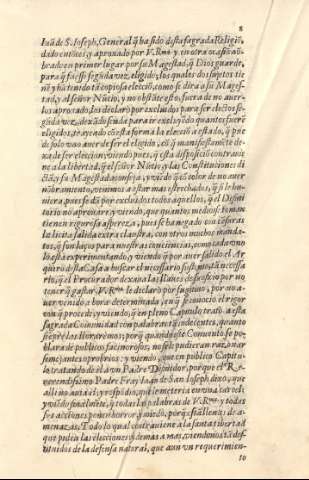 8
Iuã de S. Ioseph, General q̃ ha sido desta sagrada Religiõ,
dado entõces, y aprouado por V. Rma. y en otra ocasiõ nõ-
brado en primer lugar por su Magestad, q̃ Dios guarde,
para q̃ fuesse segũda vez eligido, los quales dos sujetos tie
nẽ y hã tenido tã copiosa elecciõ, como se dirà a su Mages-
tad, y al señor Nũcio, y no obstãte esto, fuera de no auer-
los aprouado, los declarò por excluidos para ser electos se-
gũda vez, dexãdo senda para ir excluyẽdo quantos fuerẽ
eligidos, trayendo cõ esta forma la elecciõ a estado, q̃ pue
de solo vno auer de ser el elegido, cõ q̃ manifestamẽte de-
xa de ser eleccion; viendo pues, q̃ esta disposiciõ contrauie
ne a la libertad, q̃ el señor Nũcio, y las Constituciones de
, y su Magestad aconseja, y viẽdo q̃ cõ color de no auer
nõbramiento, venimos a estar mas estrechados, q̃ si le hu-
uiera, pues se dã por excluidos todos aquellos, q̃ el Difini
torio no aprouare y viendo, que quantos medios tomamos
tienen rigurosa aspereza, pues se ha negado
la licita salida extra claustra, con otros muchos manda-
tos, q̃ son lazos para nuestras conciencias, como cada vno
lo està experimentando, y viendo q̃ por auer salido el Ar
quiero desta Casa a buscar el necessario sustento, tã necessa
rio, q̃ el Procurador dexaua las llaues de su oficio por no
tener q̃ gastar V. Rma. le declarò por fugitiuo, por no a-
uer venido a hora determinada, en q̃ se conociò el rigor
con q̃ procede, y viendo, q̃ en pleno Capitulo tratò a esta
sagrada Comunidad con palabras q̃ indecentes, quanto
siempre las lloraremos; porq̃ quando este Conuento se po
blara de publicos facinorosos, no se le pudieran razonar
semejantes oprobrios: y viendo, que en publico Capitu
lo tratando de el a vn Padre Difinidor, porque el Re-
uerendissimo Padre Fray Iuan de San Ioseph dixo, que
alli no auia el, y respõdio, que le meteria en vna carcel,
y viẽdo finalmẽte, q̃ todas las palabras de V. Rma. y todas
sus acciones, ponen horror, y miedo, porq̃ està llenas de a-
menazas; Todo lo qual contrauiene a la santa libertad
que piden las elecciones y demas a mas, viendonos tã des-
ualidos de la defensa natural, que aun vn requerimien-
to